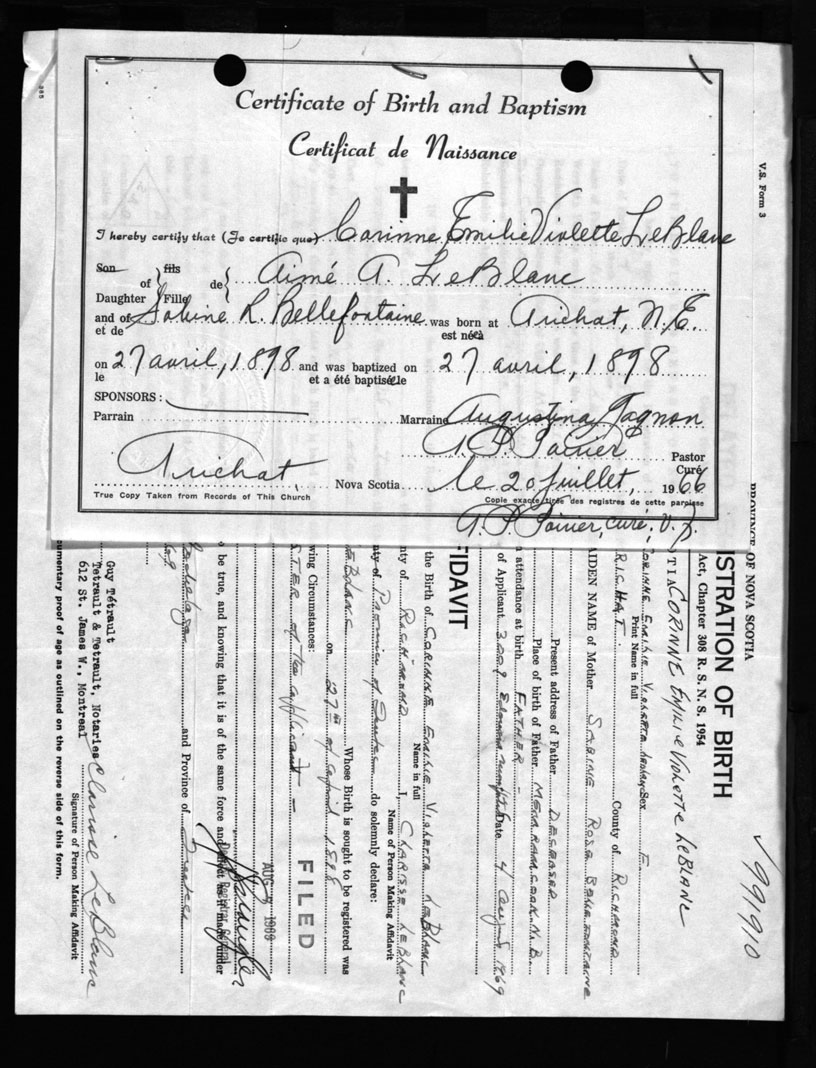 Certificate of Birth and Baptism
Certificat de Naissance
I hereby certify that (Je certifie que) Corinne Emilie Violette LeBlanc
Son of fils de Aimé A. LeBlanc
Daughter Fille
and of Sabine R. Bellefontaine was born at Arichat, N.E.
et de est né(e) à
on 27 avril, 1898 and was baptized on 27 avril, 1898
le et a été baptisé(e) le
SPONSORS:
Parrain Marraine Augustina Gagnon
A P. Poirier Pastor
Curé
Arichat, Nova Scotia le 20 juillet, 1966
True Copy Taken from Records of This Church Copie exacte tirée des registres de cette paroisse
A. P. Poirier, curé, V. F.
V.S. Form 3
PROVINCE OF NOVA SCOTIA
ISTRATION OF BIRTH
Act, Chapter 308 R. S. N. S. 1954
CORINNE EMILIE VIOLETTE LEBLANC
991910
Print Name in full
Sex F.
RICHAT County of RICHMOND
AIDEN NAME of Mother SABINE ROSE BELLEFONTAINE
Present address of Father DECEASED
Place of birth of Father MEMRAMCOOK N.B.
attendance at birth FATHER -
of Applicant Date 4 August 1969
FIDAVIT
the Birth of CORINNE EMILIE VIOLETTE LEBLANC
Name in full
nty of RICHMOND I, CLARISSE LEBLANC
Name of Person Making Affidavit
nty of Province of Quebec do solemnly declare:
LEBLANC Whose Birth is sought to be registered was
on 27th of April 1898
wing Circumstances:
STER of the applicant -
FILED
AUG 1969
Deputy Registrar General
be true, and knowing that it is of the same force and effect as if made under
and Province of Quebec
Guy Tétrault
Tetrault & Tetrault, Notaries
612 St. James W., Montreal
Clarisse LeBlanc
Signature of Person Making Affidavit
umentary proof of age as outlined on the reverse side of this form.